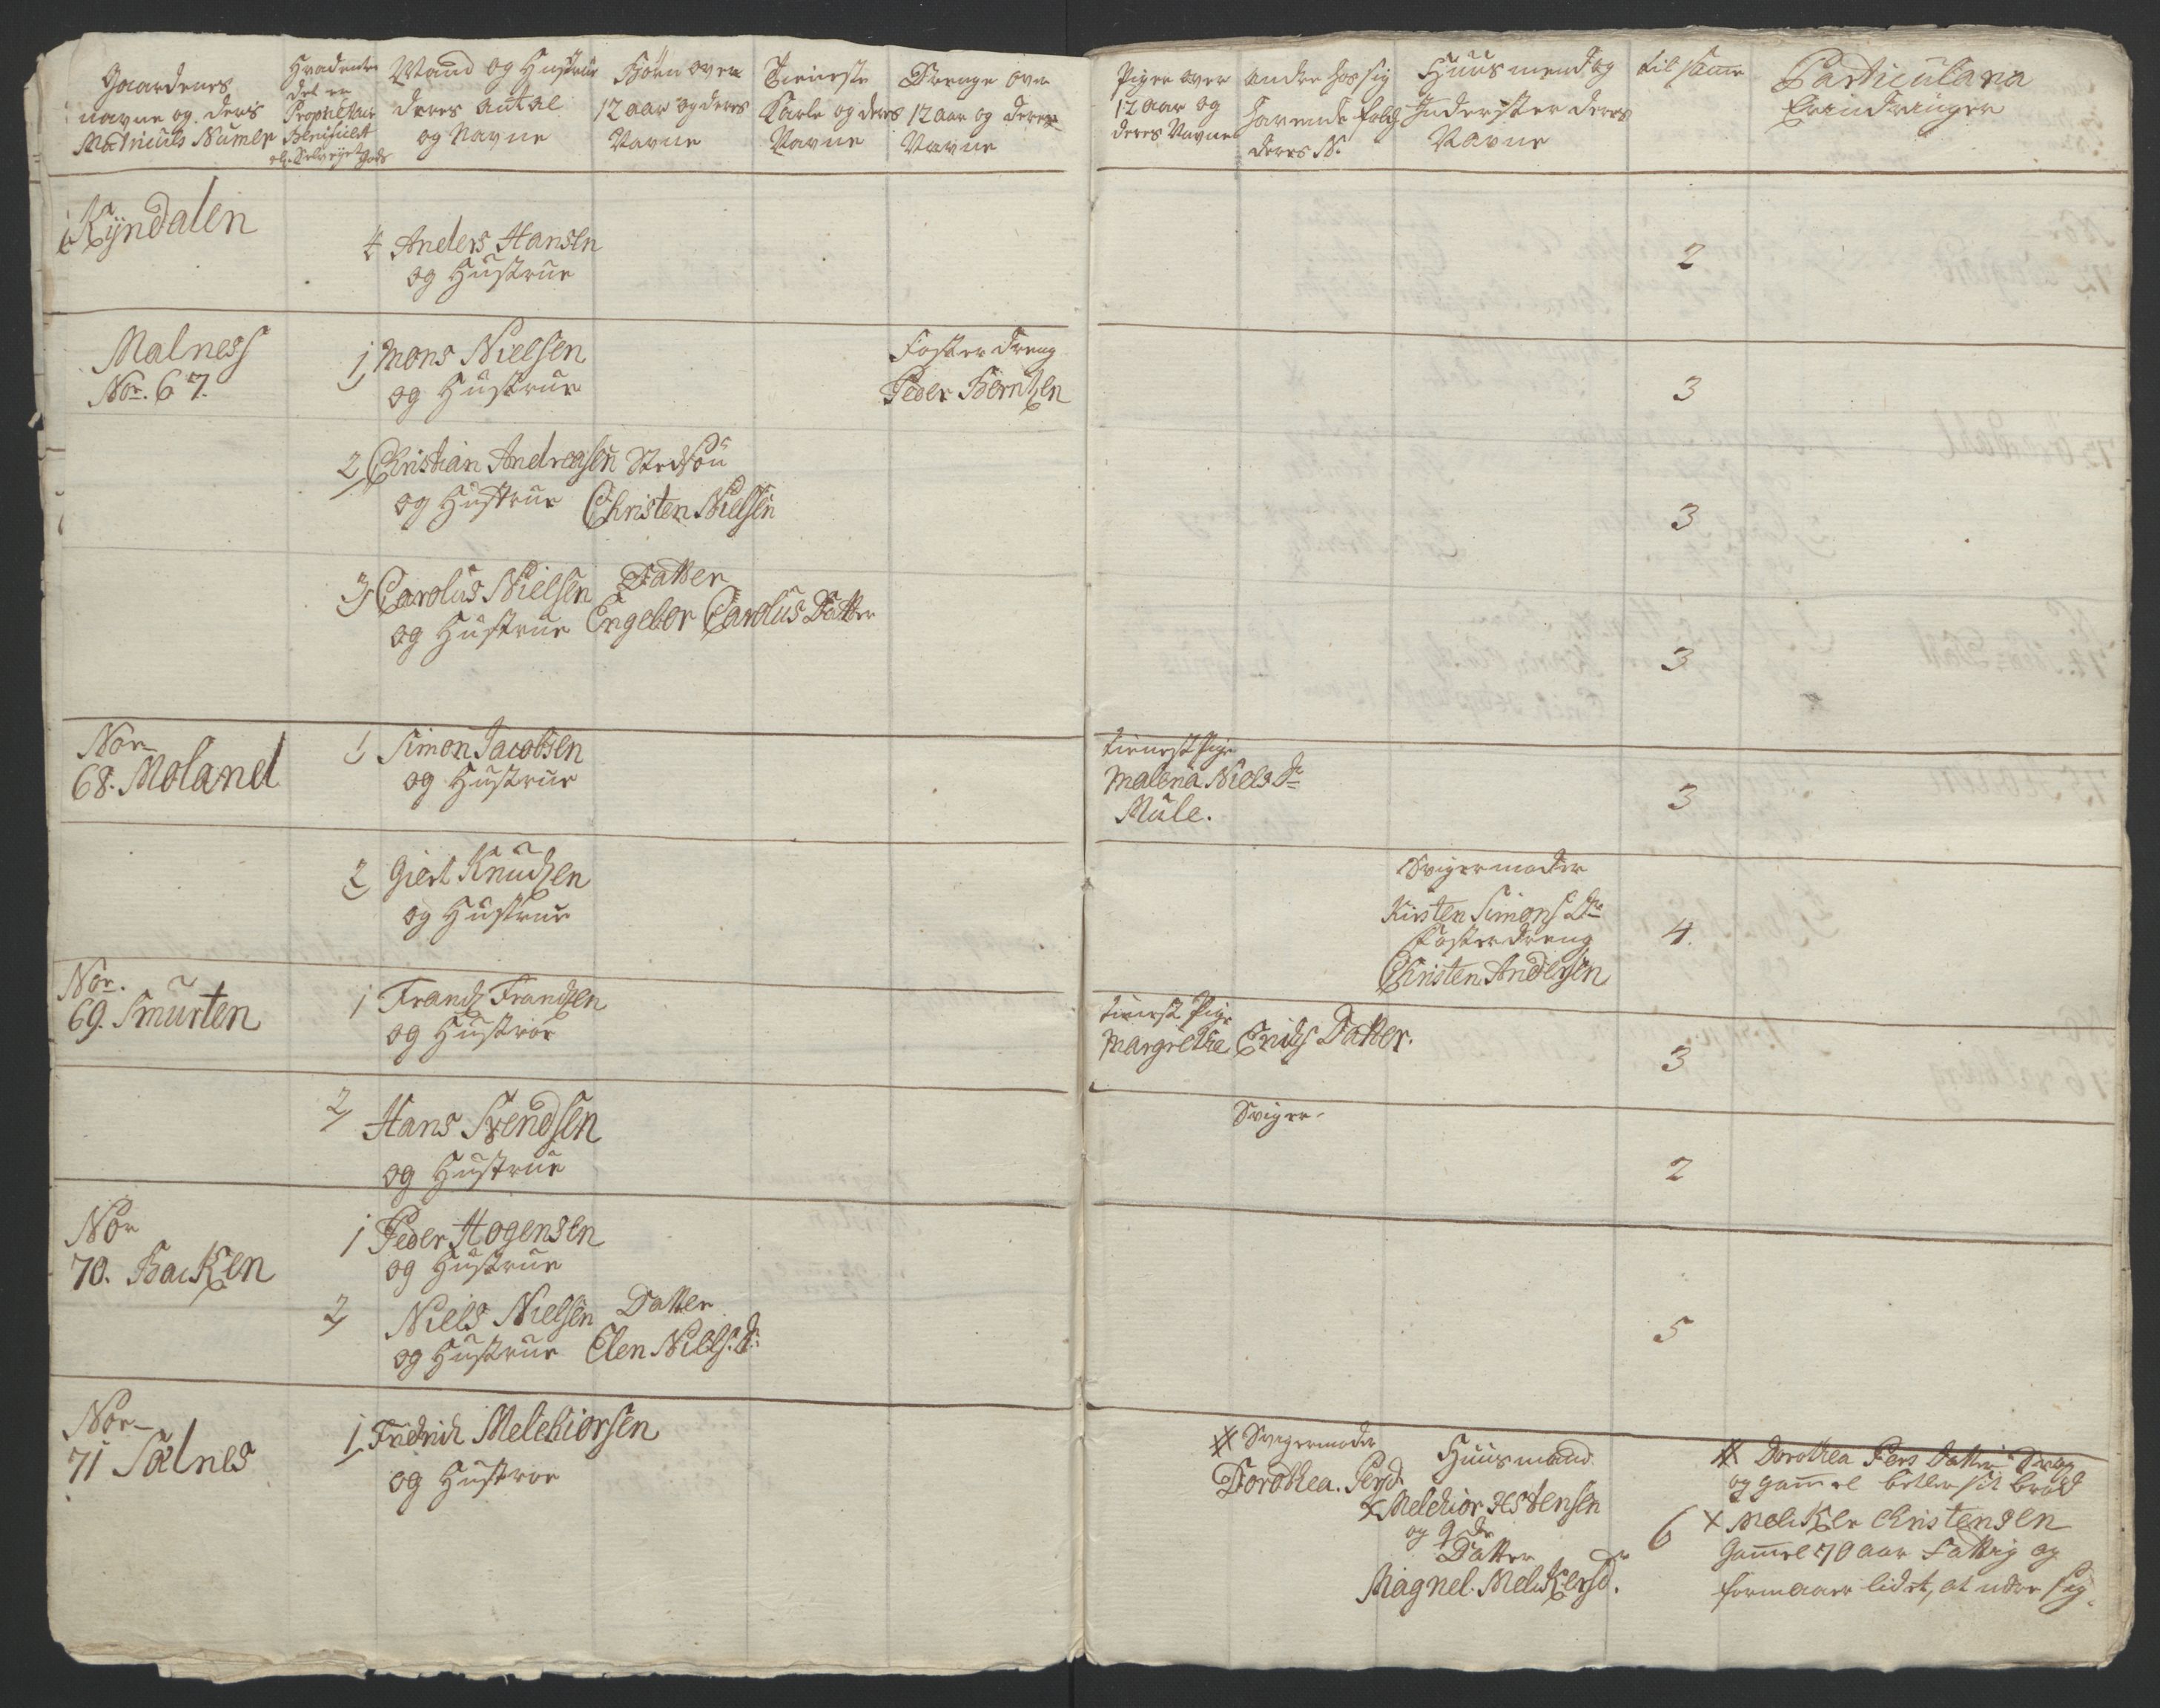 Gaardenes
navne og deres
Matriculs Numer
Hvadenten
det er
Proprietair
Benificert
ell. Selveyet Gods
Mand og Hustrue
deres antal
og Navne
Børn over
12 aar og deres
Navne
Tieneste
Karle og deres
Navne
Drenge over
12 aar og deres
Navne
Piger over
12 aar og
deres Navne
Andre hos sig
havende folch
deres N.
Huusmend og
Inderster deres
Navne
til samen
Particulara
Erindringer
Kyndalen
4 Anders Hansen
og Hustrue
2
Malness
No. 67.
1, Mons Nielsen
og Hustrue
Foster dreng
Peder Berntzen
3
2, Christian Andreasen Stedsøn
og Hustrue Christen Nielsen
3
3, Carolus Nielsen Datter
og Hustrue Engebor Carolus Datter
3
Nor
68. Moland
1, Simon Jacobsen
og Hustrue
tienest Pige
Malena Niels Dr
Mule.
3
2, Giert Knudzen
og Hustrue
Svigermoder
Kirsten Simons Dr
Foster dreng
Christen Andersen
4.
Nor.
69. Smurten
1 Frandz Frandzen
og Hustroe
tienest Pige
Margrethe Erichs Datter.
3
2, Hans Svendsen
og Hustrue
Sviger-
2
Nor
70. Backen
1 Peder Hogensen
og Hustrue
2, Niels Nielsen Datter
og Hustrue Elen Niels. Dr
5
Nor
71 Sælnes
1, Fridrich Melchiorsen
og Hustroe
# Svigermoder
Dorothea. Persd.
Huusmand
x Melchior Christensen
og
Datter
Magnel. Melckersd.
6
# Dorothea Pers Datter
og gammel betler sit brød
x Melcker Christensen
Gammel 70 aar Fattig og
formaaer lidet, at nære sig.